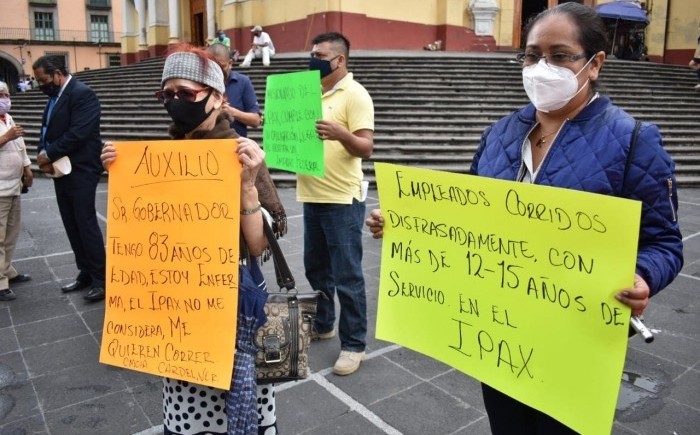 AUXILIO
SR GOBERNADOR
TENGO 83 AÑOS DE
EDAD, ESTOY ENFER
MA, EL IPAX NO ME
CONSIDERA, ME
QUIEREN CORRER
CARDEL, VER
EMPLEADOS CORRIDOS
DISFRASADAMENTE, CON
MÁS DE 12-15 AÑOS DE
SERVICIO EN EL
IPAX.